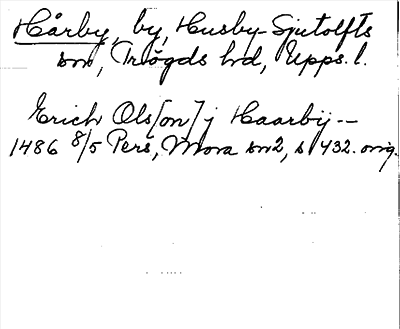 Hårby, by, Husby-Sjutolfts
sn, Trögds hd, Upps. l.
Erich Ols[on] j Haarbij --
1486 8/5 Pers, Mora sn2, s 432. orig.